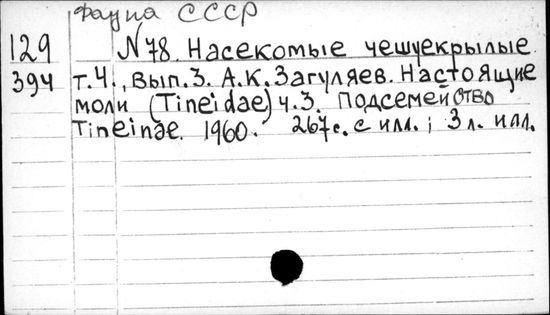 Фауна СССР
129 N78. Насекомые чешуекрылые
394 т.4., Вып.3. А.К.Загуляев. Настоящие
моли (Tineidae) ч.3. Подсемейство
Tineinae. 1960. 267с. с илл.; 3 л. илл.